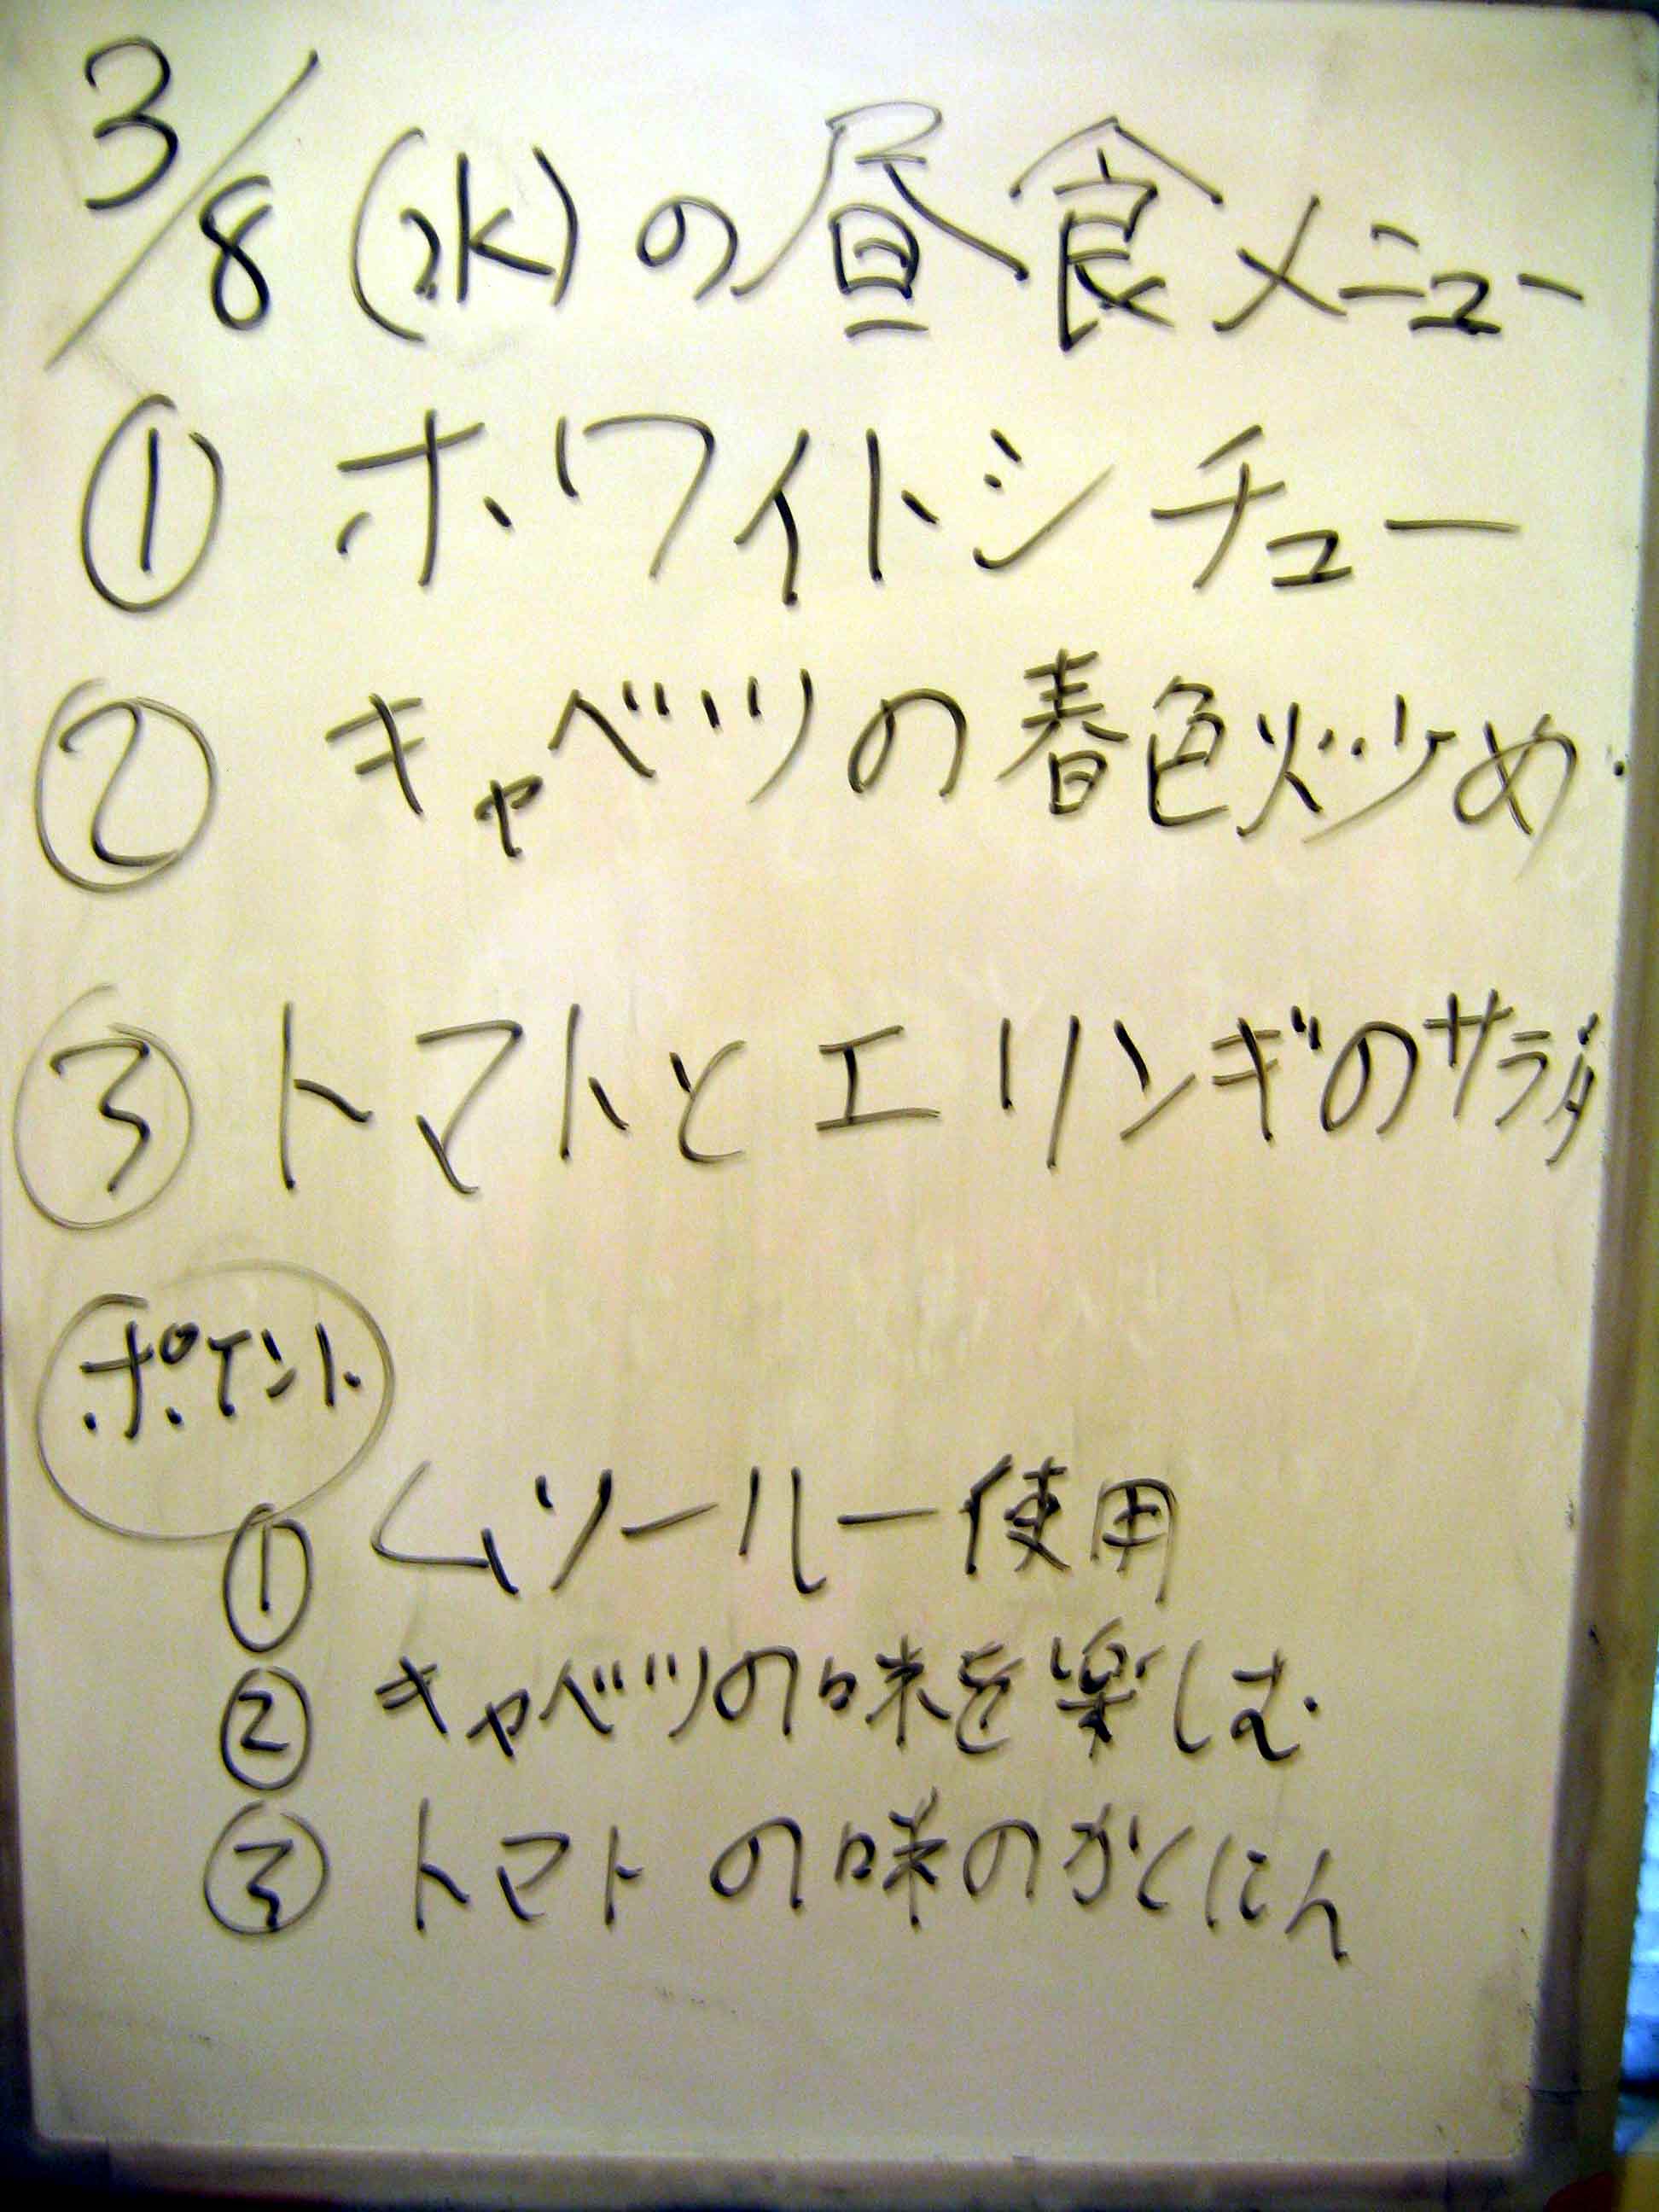 3/8(水)の昼食メニュー
① ホワイトシチュー
② キャベツの春色炒め
③ トマトとエリンギのサラダ
ポイント
① ムソールー使用
② キャベツの味を楽しむ
③ トマトの味のかくにん